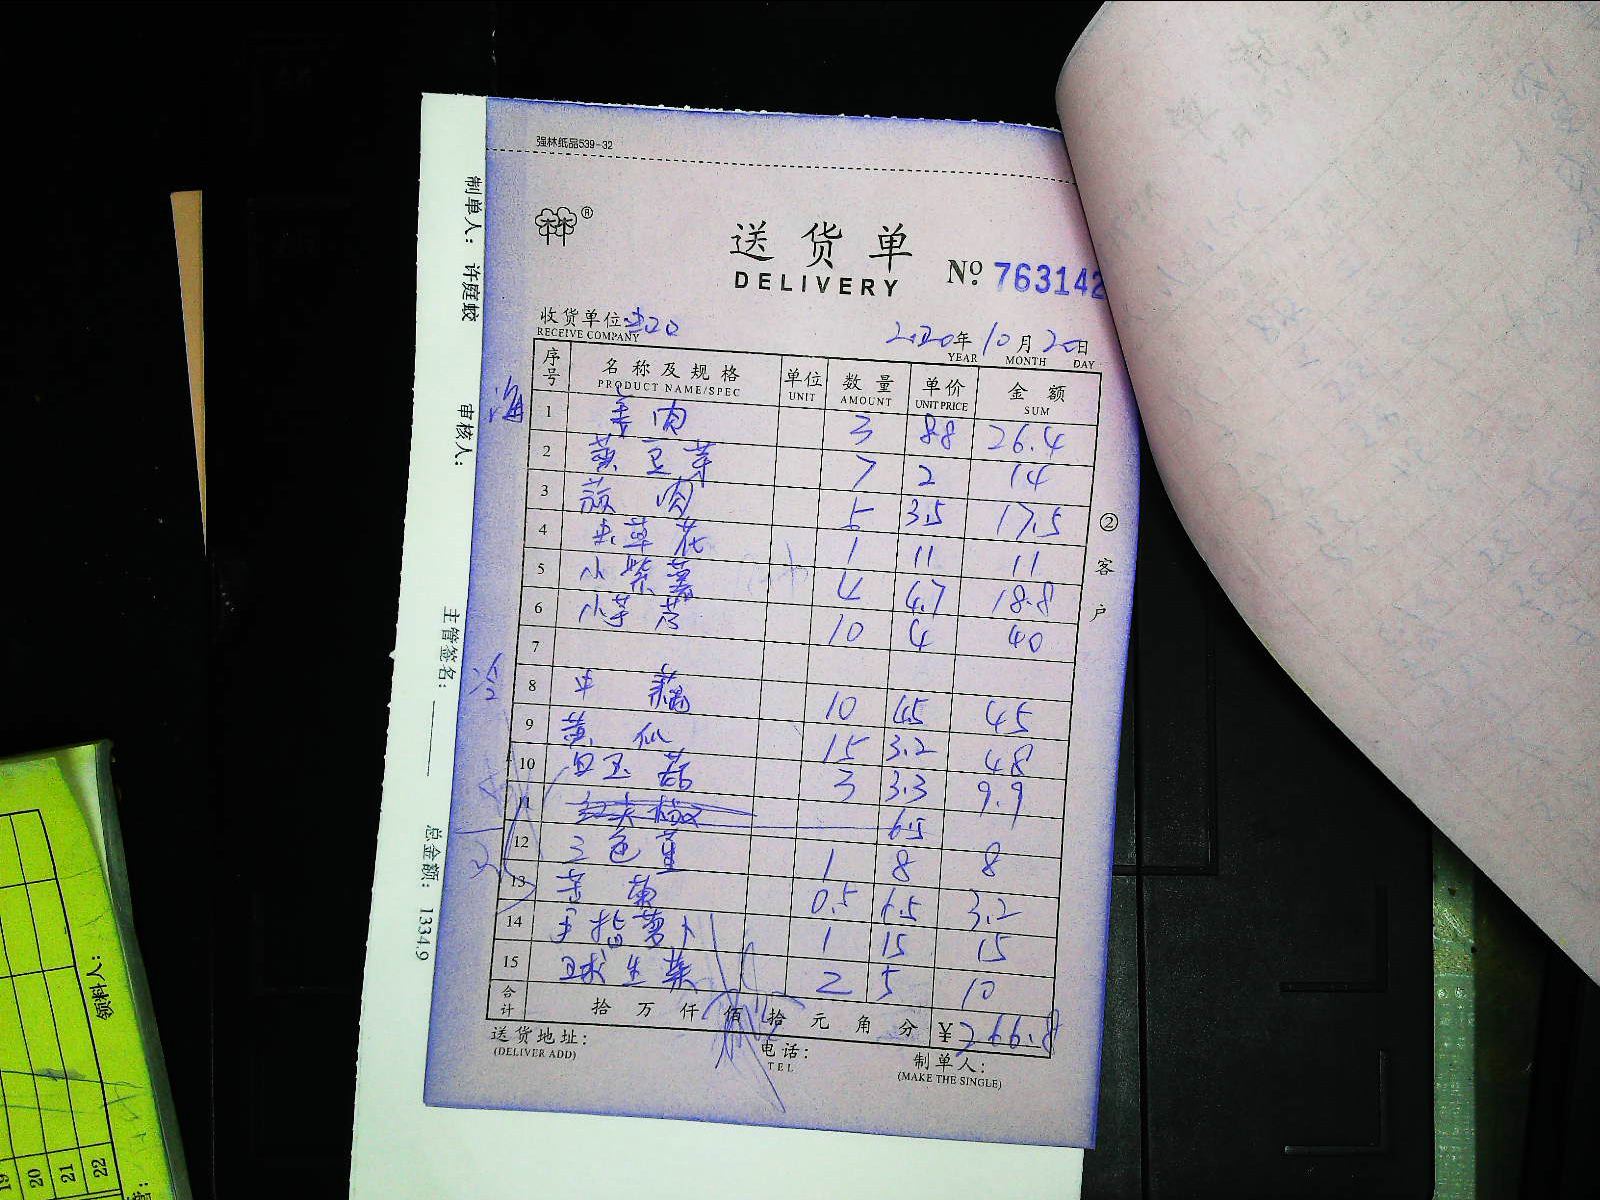 强林纸品539-32
送货单
DELIVERY
No. 763142
收货单位
RECEIVE COMPANY
2020年10月20日
YEAR MONTH DAY
序号 名称及规格 单位 数量 单价 金额
PRODUCT NAME/SPEC UNIT AMOUNT UNIT PRICE SUM
海
1 姜肉 3 8.8 26.4
2 黄豆芽 7 2 14
3 蒜肉 5 3.5 17.5
4 虫草花 1 11 11
5 小紫薯 4 4.7 18.8
6 小芋艿 10 4 40
7
冷
8 中藕 10 4.5 45
9 黄 15 3.2 48
10 白玉菇 3 3.3 9.9
11 6.5
12 三色堇 1 8 8
13 苦菊 0.5 6.5 3.2
14 手指萝卜 1 15 15
15 球生菜 2 5 10
合计 拾 万 仟 佰 拾 元 角 分 ¥266.8
送货地址:
(DELIVER ADD)
电话:
TEL
制单人:
(MAKE THE SINGLE)
② 客户
制单人: 许庭蛟
审核人:
主管签名:
总金额: 1334.9
领料人:
19
20
21
22